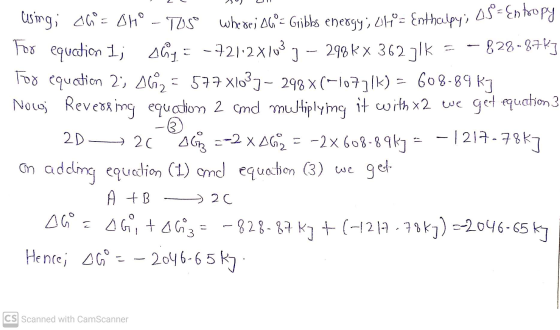 Using; ΔG° = ΔH° - TΔS° where; ΔG° = Gibbs energy; ΔH° = Enthalpy; ΔS° = Entropy
For equation 1; ΔG°₁ = -721.2 x 10³ J - 298 K x 362 J/K = -828.87 KJ
For equation 2; ΔG°₂ = 577 x 10³ J - 298 x (-107 J/K) = 608.89 KJ
Now; Reversing equation 2 and multiplying it with x2 we get equation 3
2D ⟶ 2C -③ ΔG°₃ = -2 x ΔG°₂ = -2 x 608.89 KJ = -1217.78 KJ
on adding equation (1) and equation (3) we get.
A + B ⟶ 2C
ΔG° = ΔG°₁ + ΔG°₃ = -828.87 KJ + (-1217.78 KJ) = -2046.65 KJ
Hence; ΔG° = -2046.65 KJ.
CS Scanned with CamScanner